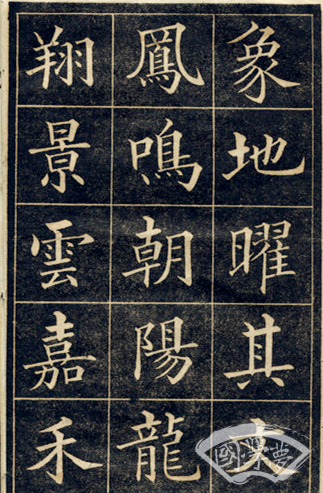 象地曜其
鳳鳴朝陽龍
翔景雲嘉禾
國學夢